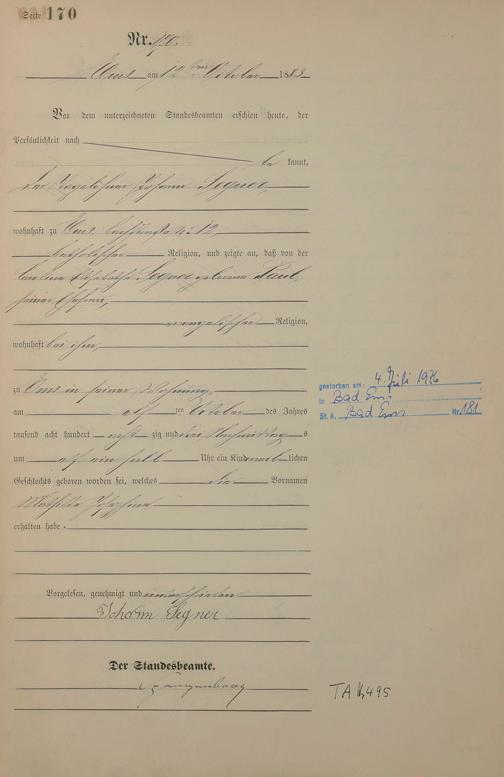 Seite 170
Nr. 170.
Ems am 12ten October 1883
Vor dem unterzeichneten Standesbeamten erschien heute, der
Persönlichkeit nach
be kannt,
der Tagelöhner Johann Segner
wohnhaft zu Ems, 12,
katholischer Religion, und zeigte an, daß von der
Elisabetha Segner geborene Paul,
seiner Ehefrau,
evangelischer Religion,
wohnhaft bei ihm,
zu Ems in seiner Wohnung,
am elf ten October des Jahres
tausend acht hundert acht zig und drei Nachmittag s
um elf ein halb Uhr ein Kind weib lichen
Geschlechts geboren worden sei, welches die Vornamen
Mathilde Josephine
erhalten habe.
Vorgelesen, genehmigt und unterschrieben
Johann Segner
Der Standesbeamte.
gestorben am: 4. Juli 1976
in Bad Ems
St. A. Bad Ems Nr. 181
TA 495